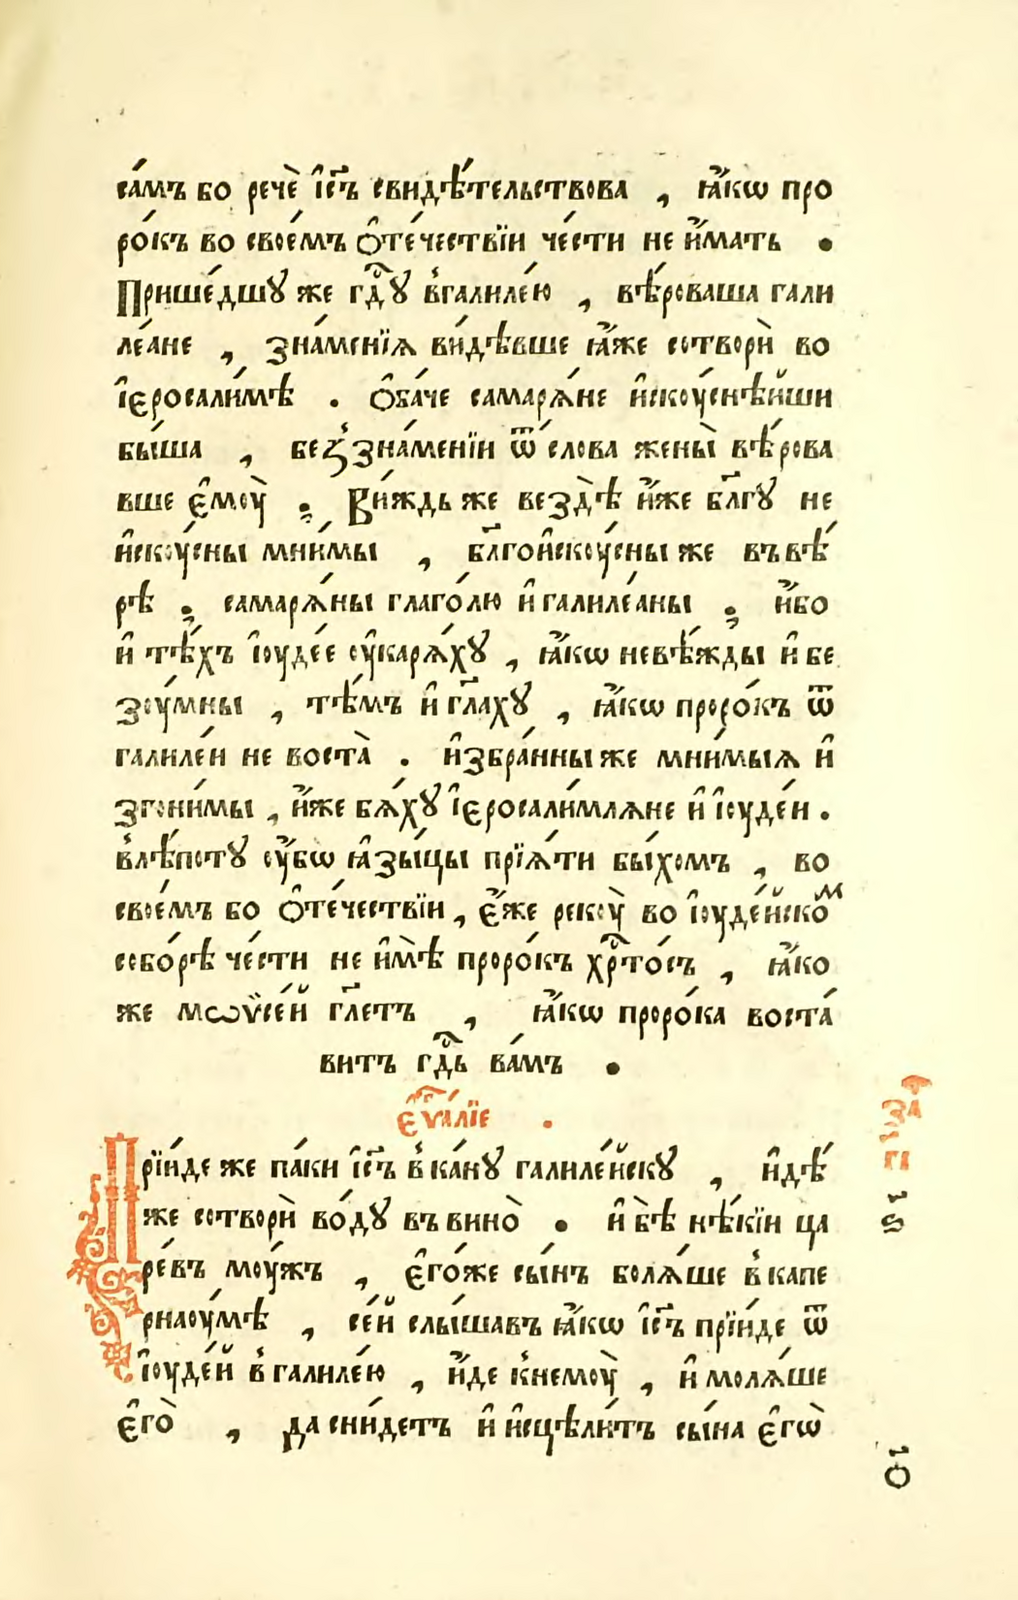 са́мъ бо речѐ і҆с҃ъ свидѣ́тельствова , ꙗ҆́кѡ про
ро́къ во свое́мъ ѻ҆те́чествїи че́сти не и҆́мать .
Прише́дшꙋ же гдⷭ҇ꙋ в҆галиле́ю , вѣ́роваша гали
ле́ане , зна́менїѧ ви́дѣвше ꙗ҆́же сотворѝ во
і҆єросали́мѣ . ѻ҆ба́че самарѧ́не и҆скоу́снѣйши
бы́ша , беꙁ̾зна́менїи ѿ сло́ва жены̀ вѣ́рова
вше є҆моу̀ . Ви́ждь же вездѣ̀ и҆́же бл҃гꙋ не
и҆скоу́сны мни́мы , бл҃гои҆скоу́сны же въ вѣ́
рѣ , самарѧ́ны глаго́лю и҆ галиле́аны , и҆́бо
и҆ тѣ́хъ і҆оуде́е оу҆карѧ́хꙋ , ꙗ҆́кѡ невѣ́жды и҆ бе
зоу́мны , тѣ́мъ и҆ гл҃ахꙋ , ꙗ҆́кѡ проро́къ ѿ
галиле́и не воста̀ . и҆збра́нны же мни́мыѧ и҆
згони́мы , и҆́же бѧ́хꙋ і҆єросали́млѧне и҆ і҆оуде́и .
в҆лѣ́потꙋ оу҆́бѡ ꙗ҆зы́цы прїѧ́ти бы́хомъ , во
свое́мъ бо ѻ҆те́чествїи , є҆́же рекоу̀ во і҆оуде́йскоⷨ
собо́рѣ че́сти не и҆мѣ̀ проро́къ хрⷭ҇то́съ , ꙗ҆́ко
же мѡѷсе́й гл҃етъ , ꙗ҆́кѡ проро́ка воста́
витъ гдⷭ҇ь ва́мъ .
є҆ѵⷢ҇а́лїе .
Прїи́де же па́ки і҆с҃ъ в҆ ка́нꙋ галиле́йскꙋ , и҆дѣ́
же сотворѝ во́дꙋ въ вино̀ . и҆ бѣ̀ нѣ́кїи ца
ре́въ моу́жъ , є҆го́же сы́нъ болѧ́ше в҆ капе
рнаоу́мѣ , се́й слы́шавъ ꙗ҆́кѡ і҆с҃ъ прїи́де ѿ
і҆оуде́й в҆ галиле́ю , и҆́де к҆немоу̀ , и҆ молѧ́ше
є҆го̀ , да сни́детъ и҆ и҆сцѣли́тъ сы́на є҆гѡ̀
за
г҃і
ѕ҃і
ѻ҃